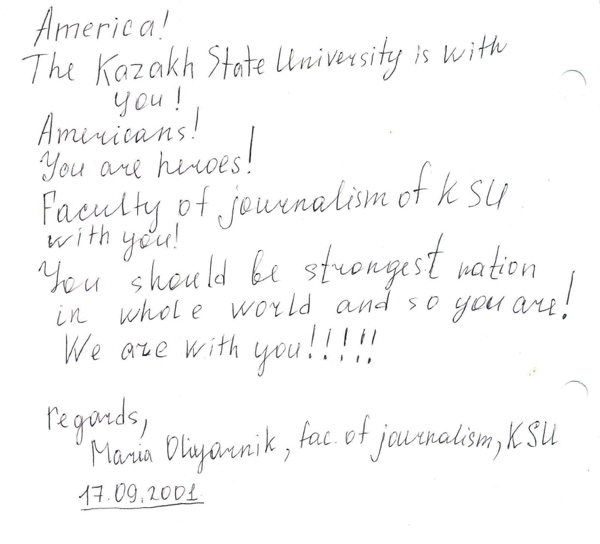 America!
The Kazakh State University is with
you!
Americans!
You are heroes!
Faculty of journalism of KSU
with you!
You should be strongest nation
in whole world and so you are!
We are with you!!!!!!
regards,
Maria Oliyarnik, fac. of journalism, KSU
17.09.2001